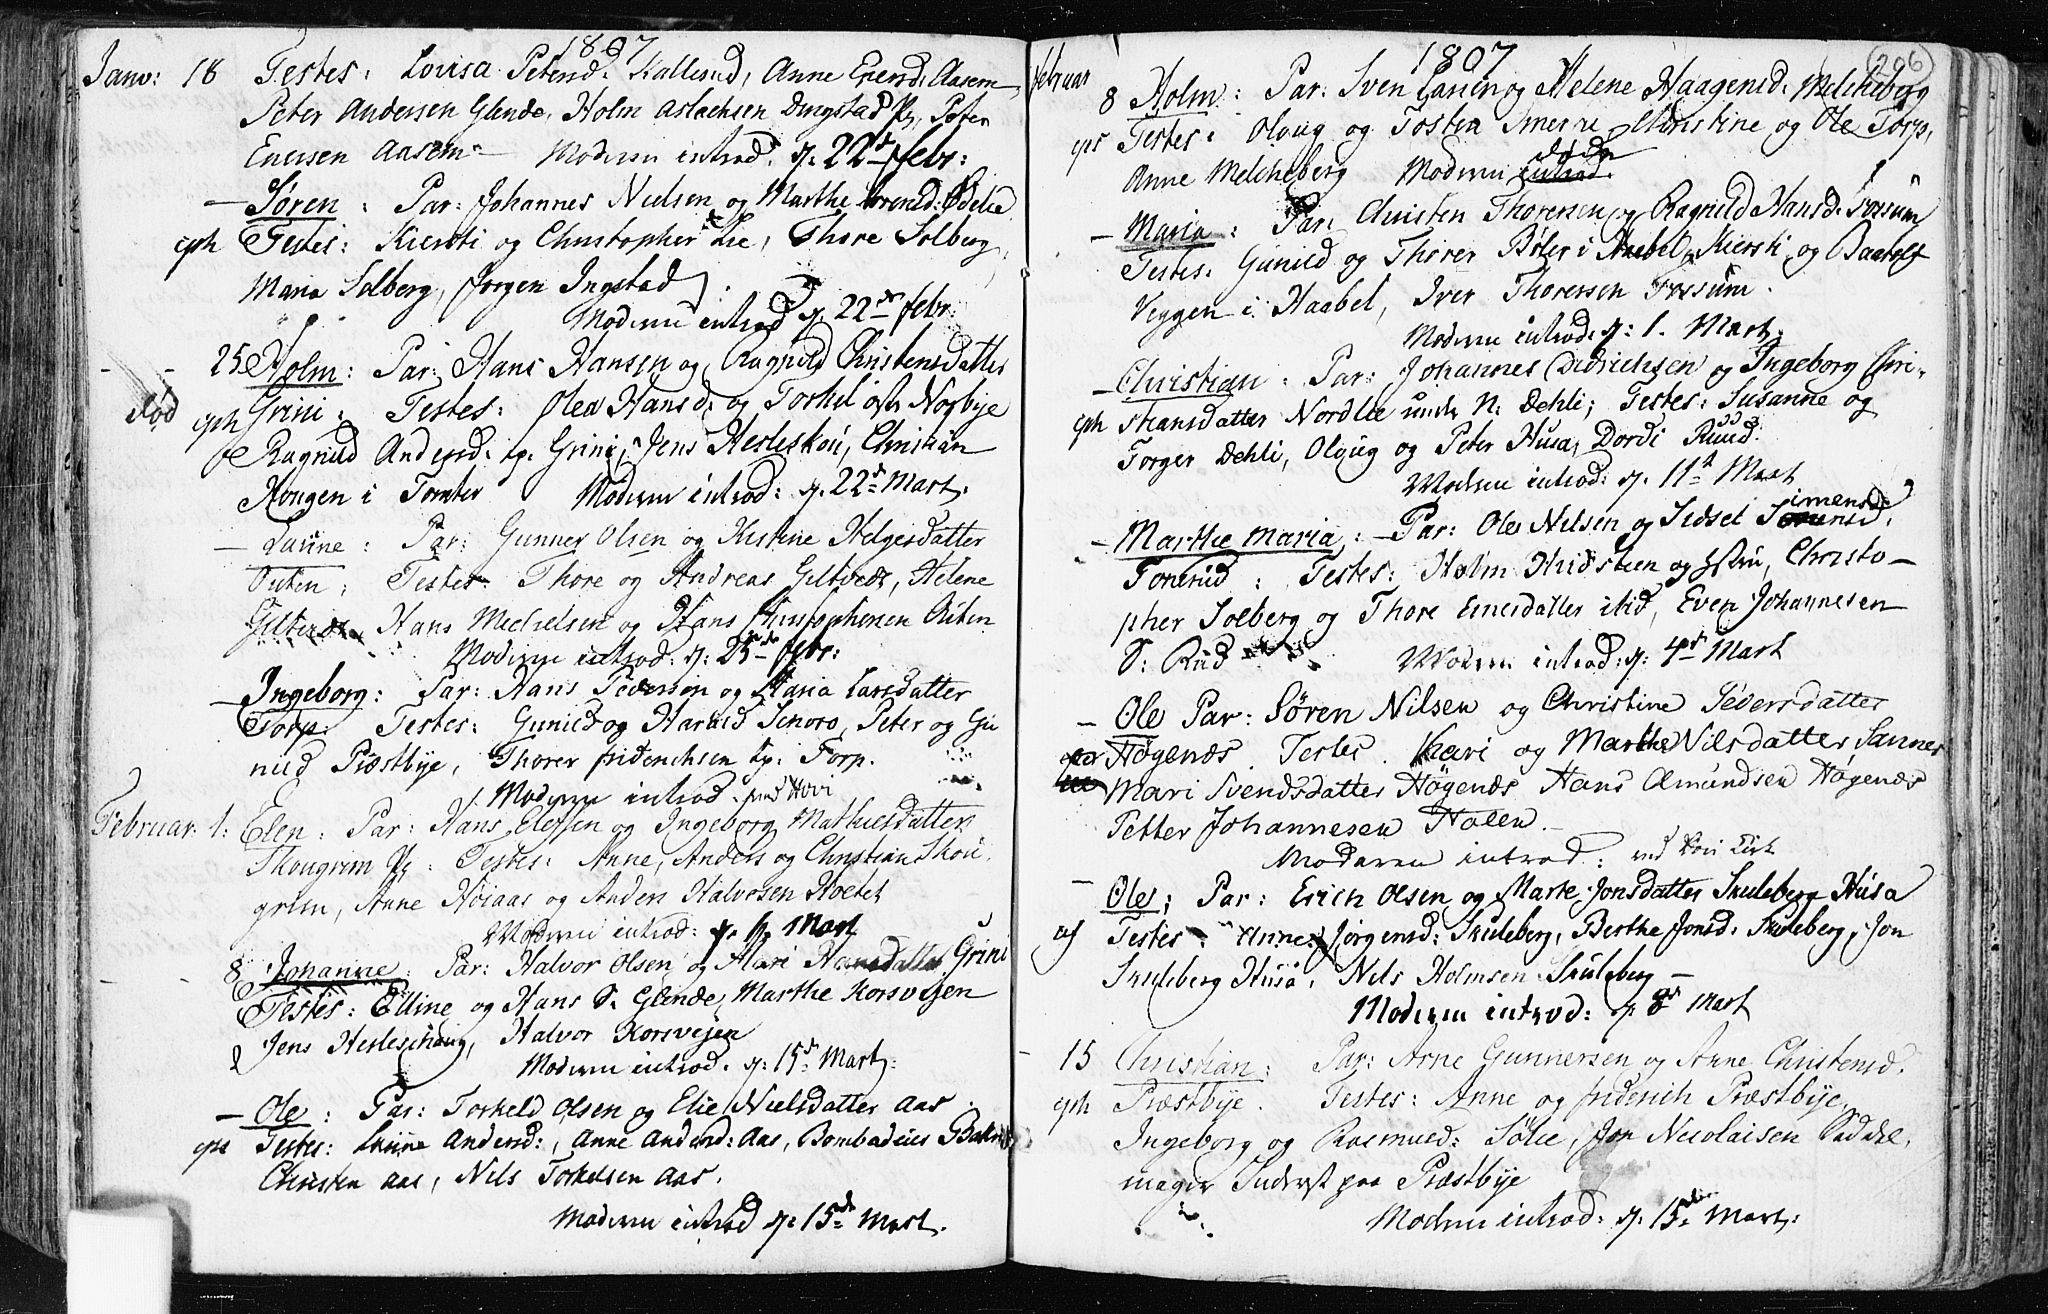 1807
Janv: 18 Testes: Lovisa Petersd: Kallerud, Anne Eversd: Aasem,
Peter Andersen Glende, Holm Aslachsen Dingstad Pl, Peter
Enersen Aasem – Moderen introd: d: 22de febr:
– Søren : Par: Johannes Nielsen og Marthe
cph Testes: Kiersti og Christopher Lie, Thore Solberg,
Maria Solberg, Jørgen Ingstad.
Moderen introd d. 22de febr:
– – 25 Holm: Par: Hans Hansen og Ragnild Christensdatter
død cph Grini; Testes: Olea Hansd: og Torkel Nøgbye
Ragnild Andersd: Grini, Jens Hesleskou, Christian
Rongen i Tomter Moderen introd: d. 22de Mart.
– Laurine : Par: Gunner Olsen og Kistine Helgesdatter
Outen ; Testes: Thore og Andreas Giltvedt, Helene
Giltvedt, Hans Mechelsen og Hans Christophersen Outen
Moderen introd: d: 25de febr:
– Ingeborg: Par: Hans Pedersen og Maria Larsdatter
Torp: Testes: Gunild og Harald Sinoro, Peter og Gu
nild Præstbye, Thorer friderichsen Torp.
Moderen introd. ved Hovi
Februar: 1: Elen: Par: Hans Elefsen og Ingeborg Mathiesdatter
Skougrim Pl: Testes: Anne, Anders og Christian Skou
grim, Anne Høiaas og Anders Halvorsen
Moderen introd: d. Mart
– – 8 Johanne: Par: Halvor Olsen og Mari Hansdatter Grini
Testes: Elline og Hans S. Glende, Marthe Korsvejen
Jens Hesleschoug, Halvor Korsvejen
Moderen introd. d: 15de Mart:
– Ole: Par: Torkeld Olsen og Elie Nielsdatter Aas.
cph Testes: Andersd:, Anne Andersd: Aas, Bombadeur
Christen Aas, Nils Torkelsen Aas.
Moderen introd d: 15de Mart.
1807
206
februar 8 Holm: Par: Sven Larsen og Helene Haagensd: Melcheberg
cph Testes: Oloug og Tosten Smerre Christine og Ole Torp,
Anne Melcheberg Moderen introd. døde
– Maria: Par: Christen Thorersen og Ragnild Hansd: Fossum
Testes: Gunild og Thorer Bøler i Haabel, Kiersti og Baarolf
Veggen i Haabel, Iver Thorersen Fossum.
Moderen introd. d: 1. Mart:
– Christian: Par: Johannes Didrichsen og Ingeborg Chri-
cph stiansdatter Nordlie under N: Dehli; Testes: Susanne og
Torger Dehli, Oloug og Peter Husa, Dordi Ruud.
Moderen introd: d. 11te Mart
– Marthe Maria: – Par: Ole Nilsen og Sidsel Simensd:
Tonerud : Testes: Holm Hudsteen og Hustru, Christo-
pher Solberg og Thore Enersdatter ibid, Even Johannesen
S: Rud Moderen introd: d: 4de Mart
– Ole Par: Søren Nilsen og Christine Pedersdatter
Høgenæs. Testes. Kari og Marthe Nilsdatter Sannes
Mari Svendsdatter Høgenæs Hans Amundsen Høgenæs
Petter Johannesen Holen –
Moderen introd: ved Kirk
– Ole; Par: Erich Olsen og Marte Jonsdatter Skuleberg Husa
Testes: Anne Jørgensd: Skuleberg, Berthe Jonsd: Skuleberg, Jon
Skuleberg Husa, Nils Holmsen Skuleberg –
Moderen introd: d 8de Mart
– 15 Christian: Par: Arne Gunnersen og Anne Christensd.
cph Præstbye. Testes: Anne og friderich Præstbye,
Ingeborg og Rasmus: Solie, Jon Nicolaisen Saddel
mager Inderst paa Præstbye
Moderen introd: d. 15de Mart: